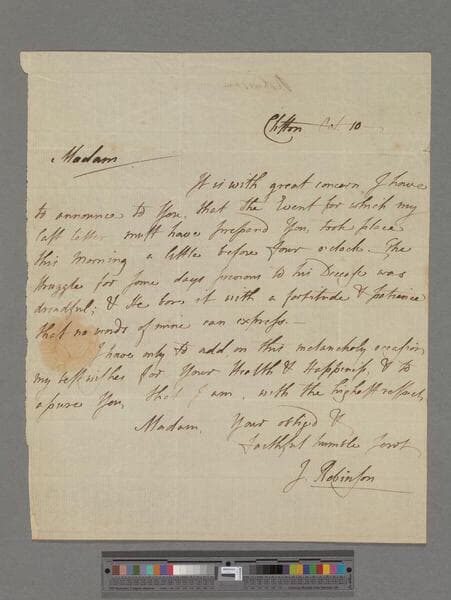 Clifton Oct. 10
Madam
It is with great concern, I have
to announce to You, that the Event for which my
last Letter must have prepared You, took place
this Morning a little before four o'clock – The
struggle for some days previous to his Decease was
dreadful; & He bore it with a fortitude & patience
that no words of mine can express. –
I have only to add on this melancholy occasion,
my best wishes for Your Health & Happiness, & to
assure You, that I am, with the highest respect,
Madam, Your obliged &
faithful humble Servt
J. Robinson